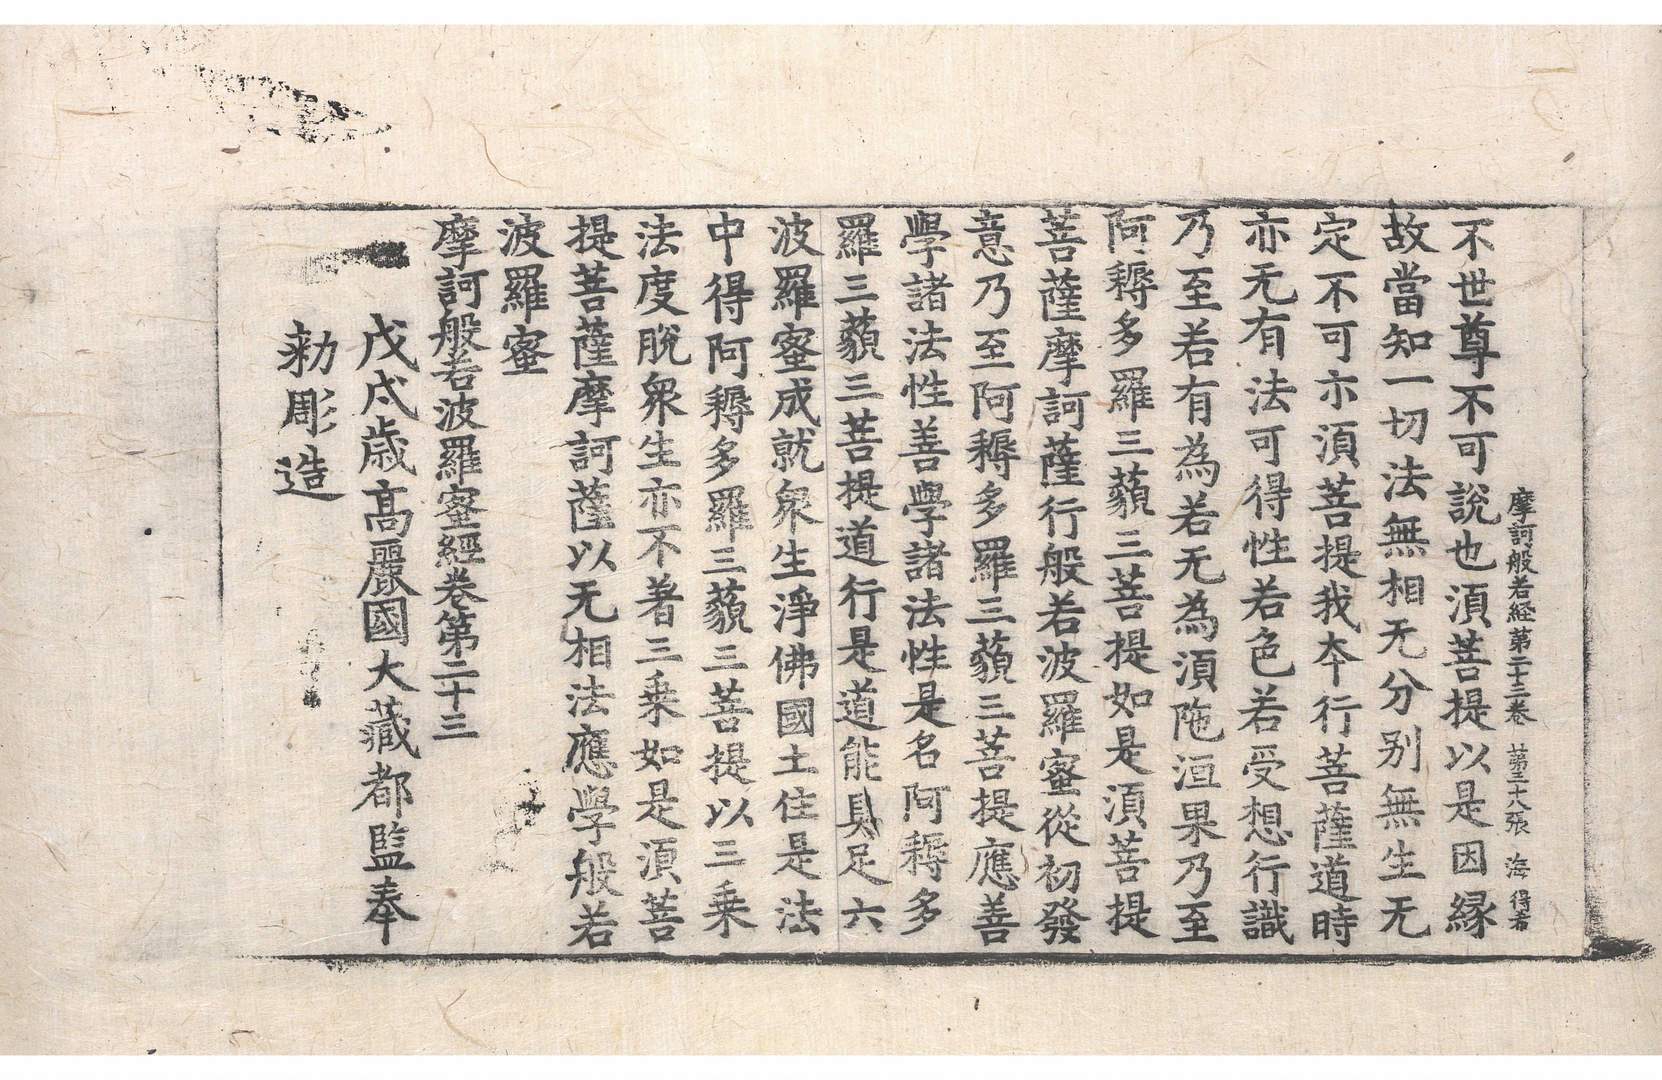 摩訶般若経第二十三卷 第三十八張 海 得希
不世尊不可說也湏菩提以是因縁
故當知一切法無相无分別無生无
定不可亦湏菩提我夲行菩薩道時
亦无有法可得性若色若受想行識
乃至若有為若无為湏陁洹果乃至
阿耨多羅三藐三菩提如是湏菩提
菩薩摩訶薩行般若波羅蜜從初發
意乃至阿耨多羅三藐三菩提應善
學諸法性善學諸法性是名阿耨多
羅三藐三菩提道行是道能具足六
波羅蜜成就衆生淨佛國土住是法
中得阿耨多羅三藐三菩提以三乗
法度脫衆生亦不著三乗如是湏菩
提菩薩摩訶薩以无相法應學般若
波羅蜜
摩訶般若波羅蜜經卷第二十三
戊戌歲高麗國大藏都監奉
勑彫造